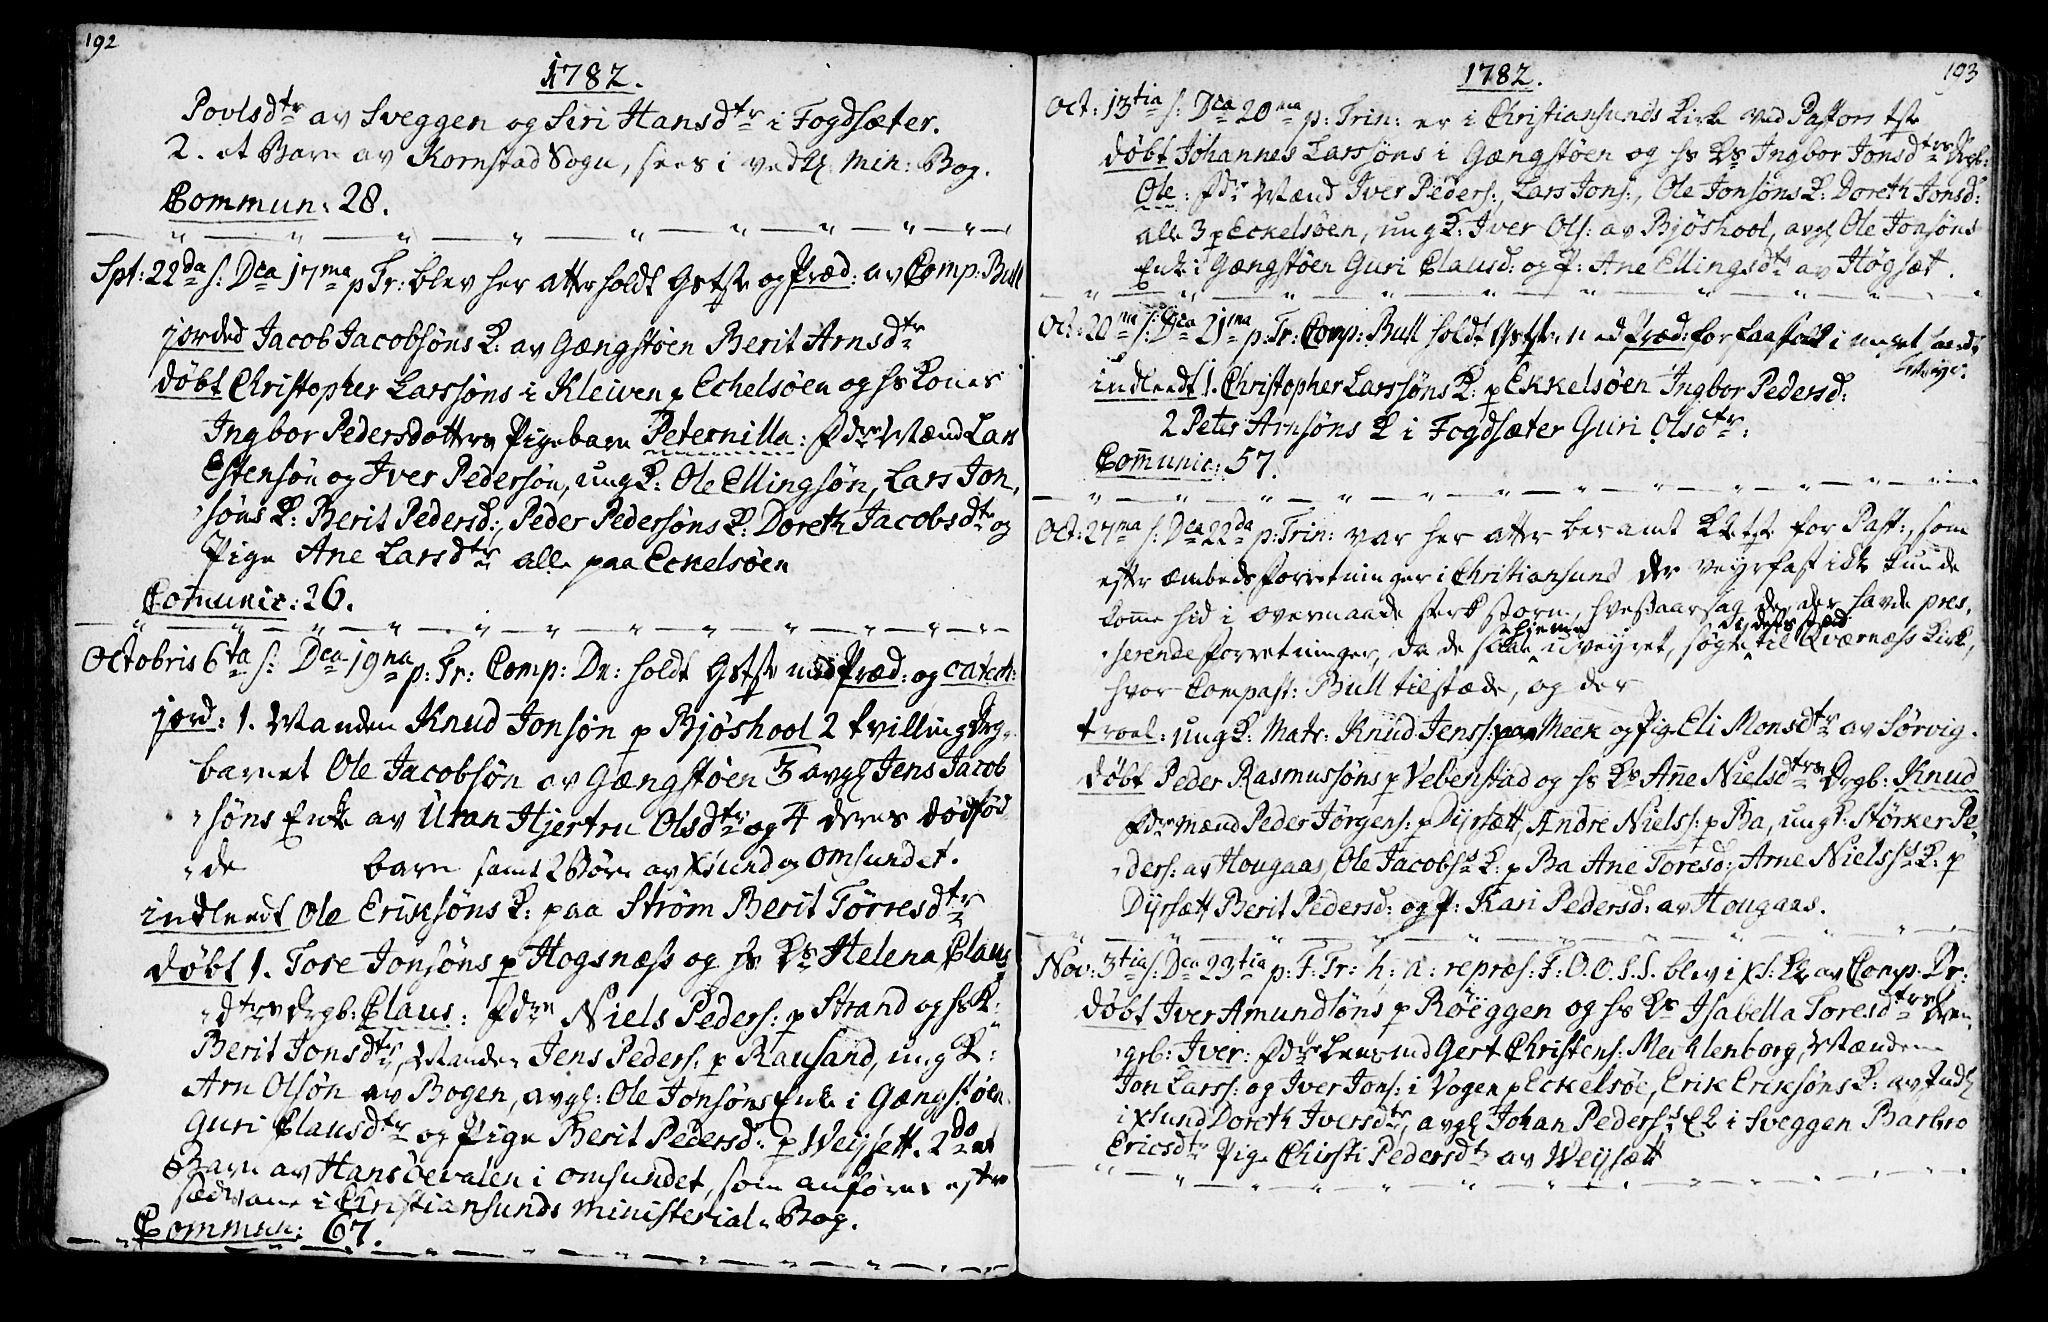 192
1782.
Povlsdtr av Sveggen og Siri Hansdtr i Fogdsæter.
2. et Barn av Kornstad Sogn, sees i vedk. min: Bog.
Commun: 28.
Spt: 22da s: Dca 17ma p Tr: blev her atter holdt Gstste og Præd: av Comp: Bull
jorded Jacob Jacobsøns K: av Gængstøen Berit Arnsdtr
døbt Christopher Larssøns i Kleiven p Echelsøen og hs Kones
Ingbor Pedersdotters Pigebarn Peternilla: fdre Mænd Lars
Estensøn og Iver Pedersøn, ung K: Ole Ellingsøn, Lars Jon,
søns K: Berit Pedersd:, Peder Pedersøns K: Doreth Jacobsdtr og
Pige Ane Larsdtr alle paa Eckelsøen
Comunic: 26.
Octobris 6ta s: Dca 19na p: Tr: Comp: Dn: holdt Gstste med Præd: og catech:
jord: 1. Manden Knud Jonsøn p Bjøshool 2 tvilling Drg,
barnet Ole Jacobsøn av Gængstøen 3 avgl Jens Jacob
søns Enke av Utan Hjertru Olsdtr og 4 deres dødfød
de barn samt 2 Børn av Xsund og Omsundet.
indleedt Ole Eriksøns K: paa Strøm Berit Torresdtr
døbt 1. Tore Jonsøns p Hogsnæss og hs Ks Helena Claus
dtrs Drgb: Claus: fdre Niels Peders: p Strand og hs K:
Berit Jonsdtr, Manden Jens Peders: p Rausand, ung K:
Arn Olsøn av Bogen, avgl: Ole Jonsøns Enke i Gængstøen
Guri Clausdtr og Pige Berit Pedersd: p Weysett. 2do et
Barn av Hans Øevalen i Omsundet, som anføres efter
sædvane i Christiansunds Ministerial-Bog.
Commun: 67.
193
1782.
Oct: 13tia s: Dca 20ma p: Trin: er i Christiansunds Kirke ved Pastors tste
døbt Johannes Larssøns i Gængstøen og hs Ks Ingbor Jonsdtrs Drgb:
Ole: fdre Mænd Iver Peders:, Lars Jons:, Ole Jonsøns K: Doreth Jonsd:
alle 3 p Eckelsøen, ung K: Iver Ols: av Bjøshool, avgl Ole Jonsøns
Enke i Gængstøen Guri Clausd: og P: Ane Ellingsdtr av Høgsæt.
Oct: 20ma s: Dca 21ma p: Tr: Comp: Bull holdt Gstste med Præd: for faa folk i meget haardt
Veyr.
indleedt 1. Christopher Larssøns K: p Ekkelsøen Ingbor Pedersd:
2 Peter Arnsøns K i Fogdsæter Guri Olsdtr:
Comunic: 57.
Oct: 27ma s: Dca 22da p: Trin: var her atter beramt Ktste for Past:, som
efter æmbedsforretninger i Christiansund der veyrfast ikke kunde
kome hid i overmaade sterk storm, hvesaarsag de der havde pres,
serende forretninger, da de skiønte uveyret, søgte dideres stæd til Qværnæss Kirke,
hvor Compast: Bull tilstæde, og der
troel: ung K: Matr: Knud Jenss: paa Meek og Pig Eli Monsdtr av Sørvig.
døbt Peder Rasmussøns p Vebenstad og hs Ks Anne Nielsdtrs Drgb: Knud
fdre mænd Peder Jørgens: p Dyrsætt, Andre Niels: p Ba, ung K: Størker Pe,
ders: av Hougaas, Ole Jacobss K: p Ba Ane Toresd:, Arne Nielsss K: p
Dyrsætt Berit Pedersd: og P: Kari Pedersd: av Hougaas.
Nov: 3tia s: Dca 23tia p: F: Tr: h: a: repræs: F: O. O. S. S. blev i Xs: K av Comp. Dr:
døbt Iver Amundsøns p Røeggen og hs Ks Isabella Toresdtrs Dren
grb: Iver: fdre Lensmd Gert Christens: Mecklenborg, Mændene
Jon Larss: og Iver Jons: i Vogen p Eckelsøe, Erik Eriksøns K: av Indl
i Xsund Doreth Iversdtr, avgl Johan Pederss Ek i Sveggen Barbro
Ericsdtr Pige Chirsti Pedersdtr av Weysætt